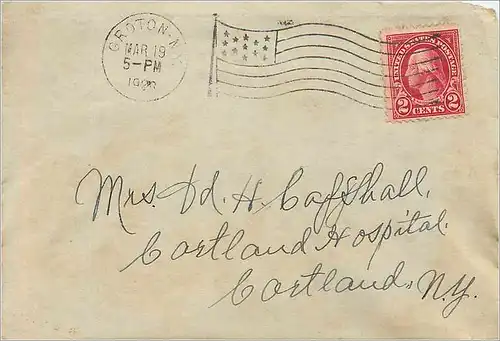 GROTON-N.Y.
MAR 19
5-PM
UNITED STATES POSTAGE
2 CENTS 2
Mrs. Ed. H.
Cortland Hospital.
Cortland, N.Y.